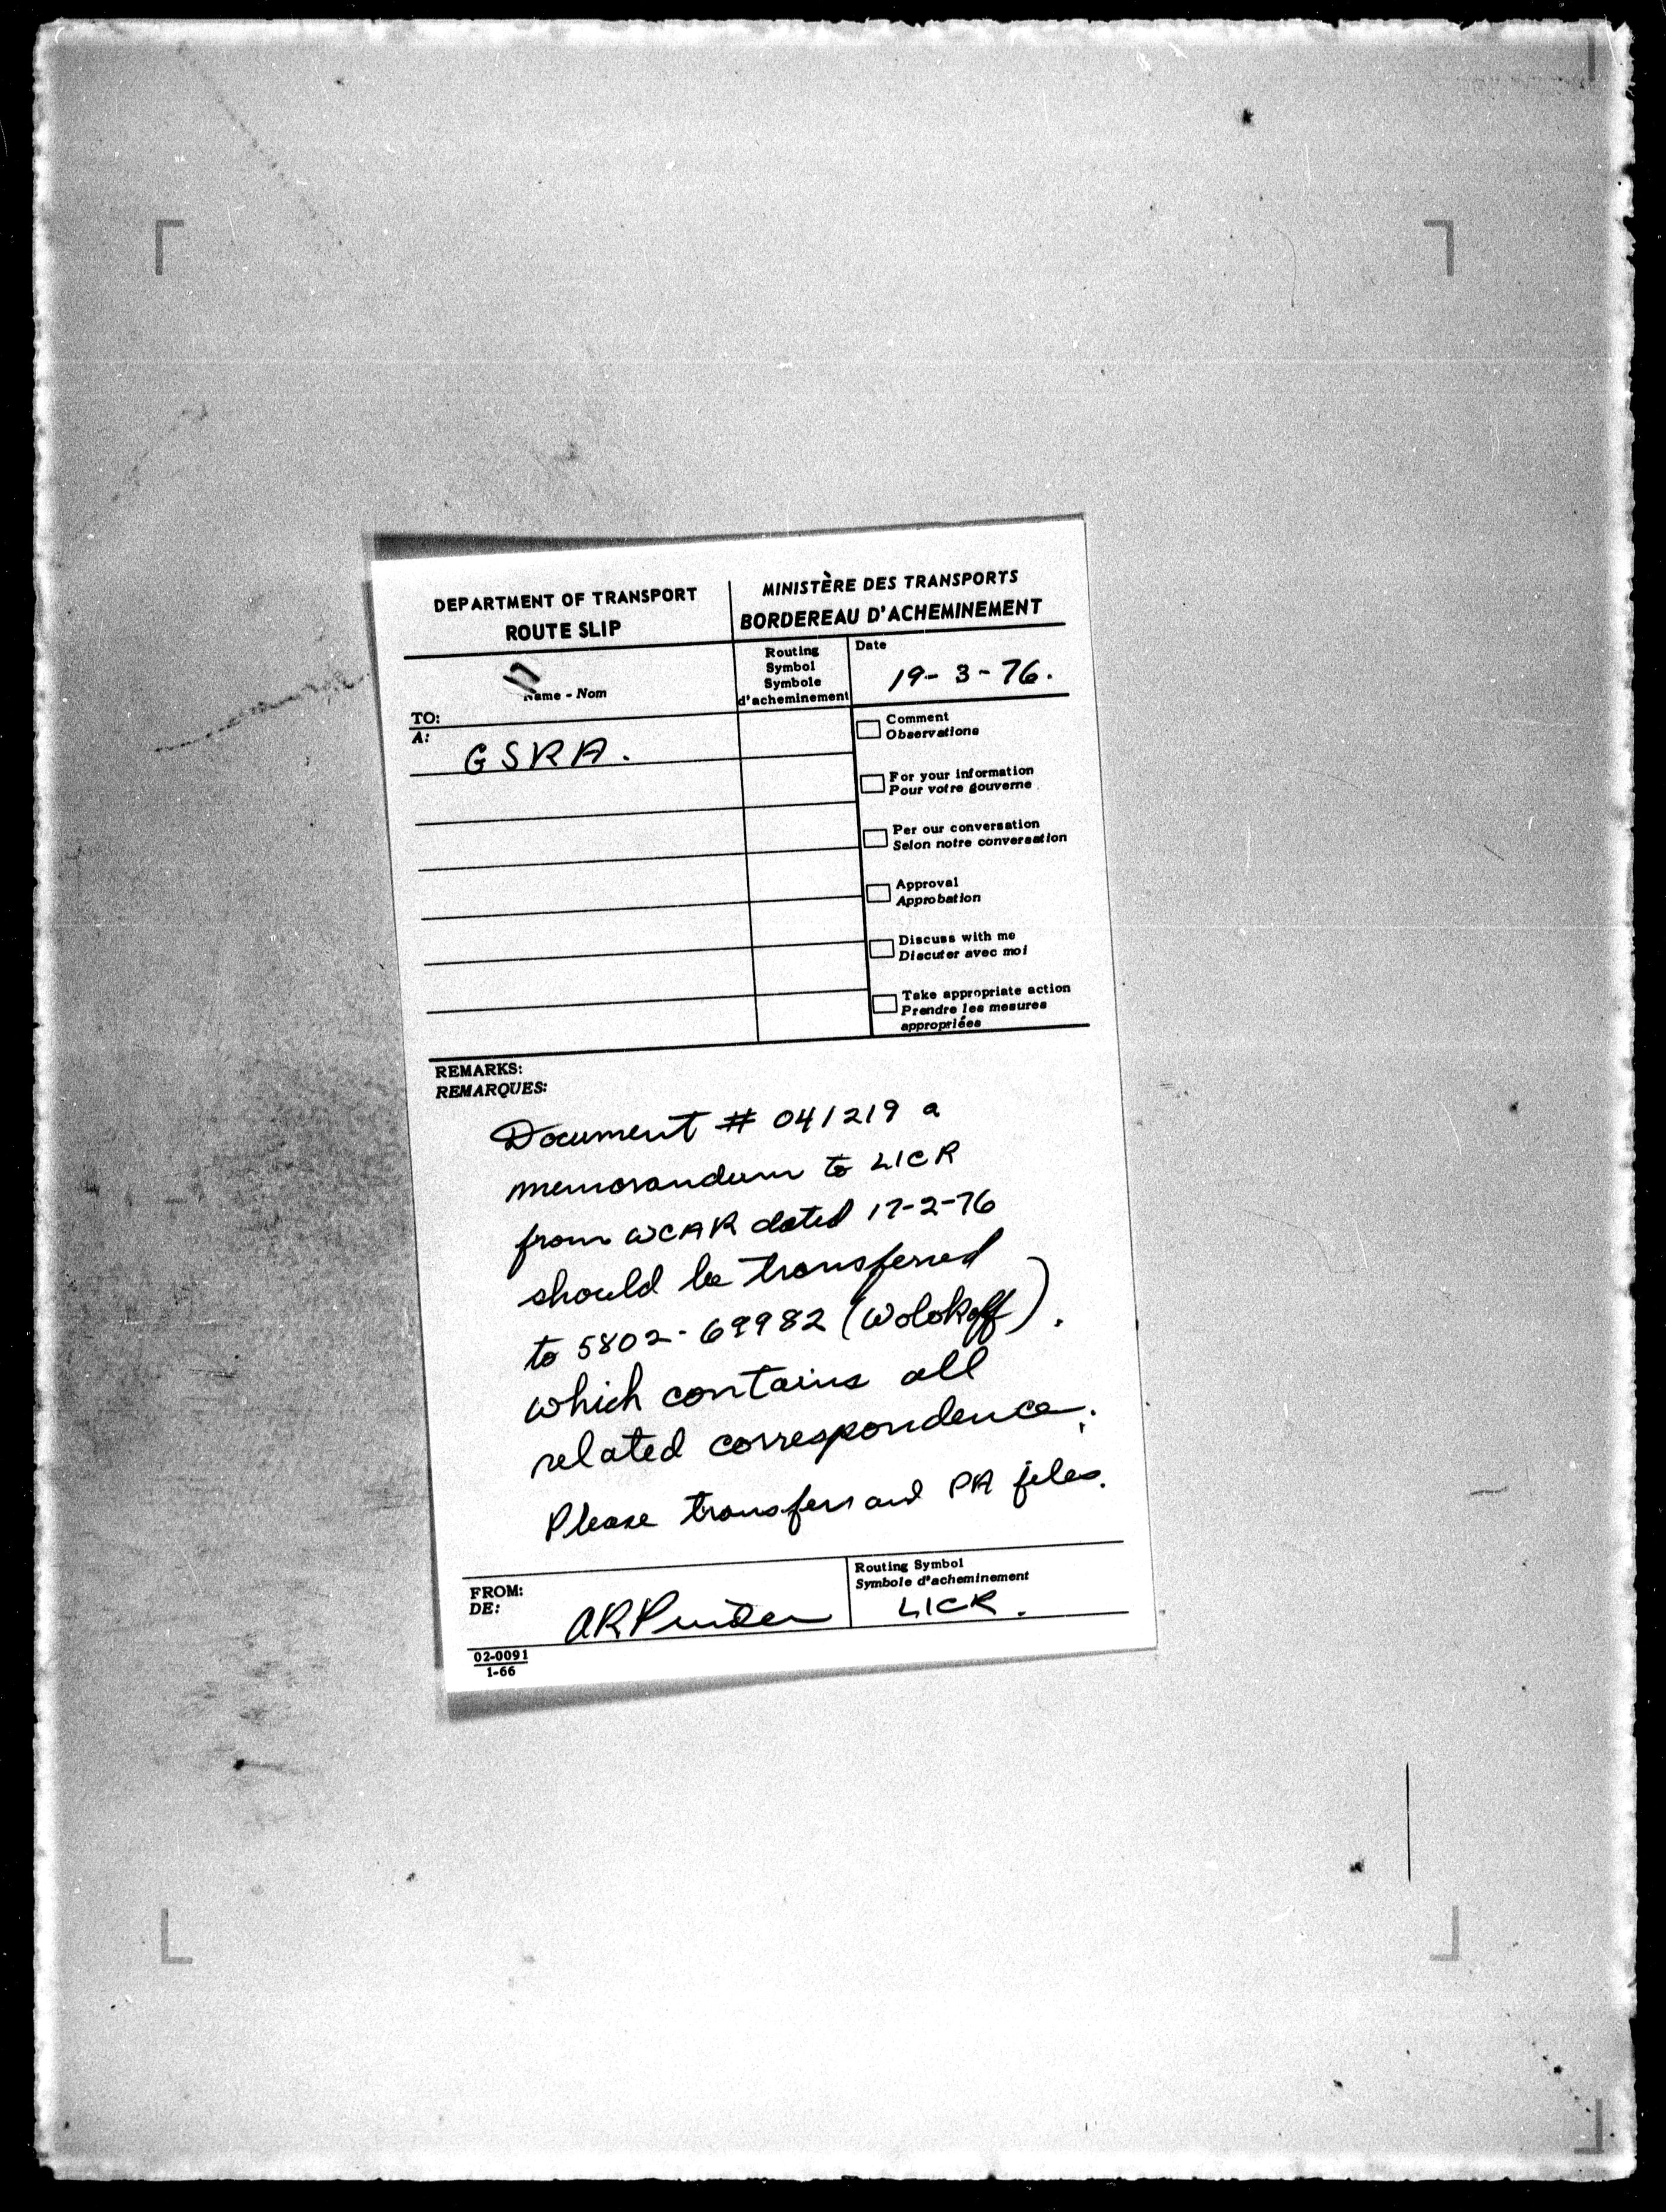 DEPARTMENT OF TRANSPORT
ROUTE SLIP
MINISTÈRE DES TRANSPORTS
BORDEREAU D'ACHEMINEMENT
Name - Nom
Routing
Symbol
Symbole
d'acheminement
Date
19-3-76.
TO:
A:
GSRA.
Comment
Observations
For your information
Pour votre gouverne
Per our conversation
Selon notre conversation
Approval
Approbation
Discuss with me
Discuter avec moi
Take appropriate action
Prendre les mesures
appropriées
REMARKS:
REMARQUES:
Document # 041219 a
memorandum to LICR
from WCAR dated 17-2-76
should be transferred
to 5802-69982 (Wolokoff).
which contains all
related correspondence.
Please transfer and PA files.
FROM:
DE:
Routing Symbol
Symbole d'acheminement
LICR.
02-0091
1-66